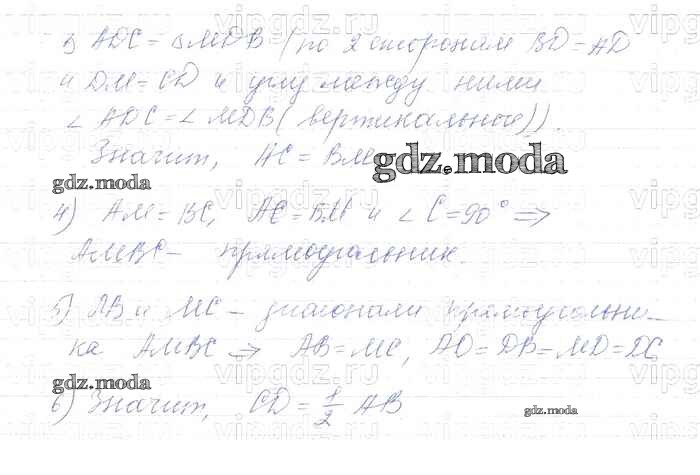 Δ ADC = ΔMDB (по 2 сторонам BD = AD
и DM = CD и углу между ними
∠ ADC = ∠ MDB (вертикальные)).
Значит, AC = BM
gdz.moda
gdz.moda
4) AM = BC, AC = BM и ∠ C = 90° ⇒
AMBC – прямоугольник.
5) AB и MC – диагонали прямоугольни-
ка AMBC ⇒ AB = MC, AD = DB = MD = DC
gdz.moda
6) Значит, CD = 1/2 AB
gdz.moda